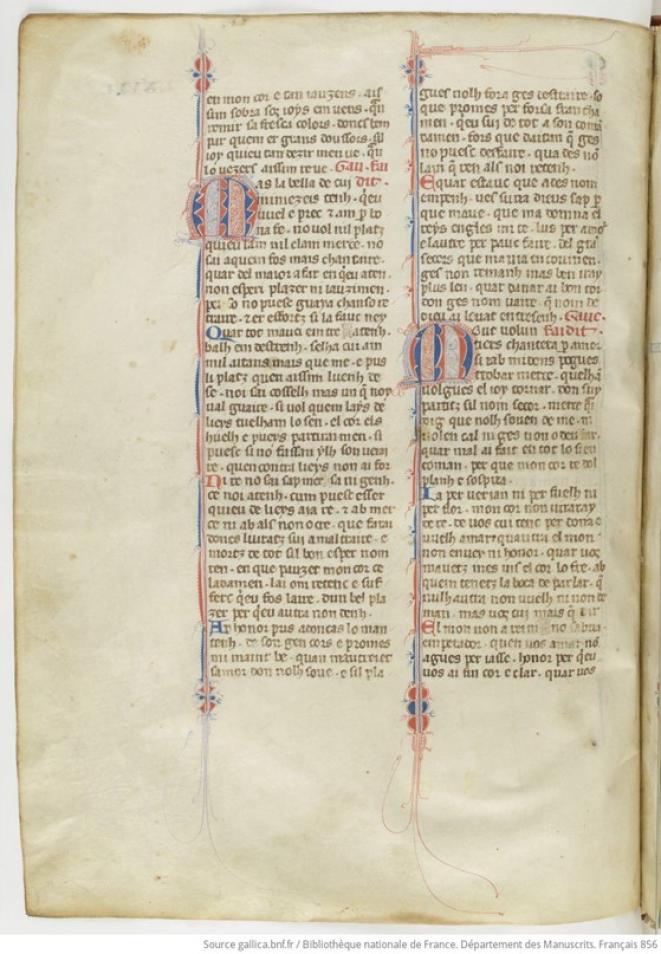 en mon cor e tan iauzens . ais
sim sobra soz ioys em uens . qñ
remir sa fresca colors . doncs tem
pur quem er grans doussors . sil
ioy quieu tan dezir men ue . qñ
lo uezers aissim reue . Gau . fai
Mas la bella de cui dit .
mimezeis tenh . qeu
uiuel e prec e am p bo
na fe . no uol nil platz
quieu lam nil clam merce . no
sai aquem fos mais chantaire .
quar del maior afar en qeu aten
non esper plazer ni iauzimen .
per so no puesc guaya chanso re
traire . er esfortz si la fauc ney
Quar tot mauci em tre atenh .
balh em destrenh . selha cui am
mil aitans mais que me . e pus
li platz quen aissim luenh de
se . noi sai cosselh mas un q̃ noy
ual guaire . si uol quem lays de
lieys tuelham lo sen . el cor els
huelh e pueys partirai men . si
puesc si no fassan ylh son ueiai
re . quen contra lieys non ai for
Di re no sai sap mer sa ni genh .
ce noi atenh . cum puesc esser
quieu de lieys aia re . ab mer
ce ni ab als non o cre . que farai
doncs liuratz sui a mal traire . e
mortz de tot sil bon esper nom
ten . en que pauzet mon cor ce
ladamen . lai om retenc e suf
ferc qeu fos laire . dun bel pla
zer per qeu autra non denh .
Ar honor pus adoncas lo man
tenh . de son gen cors e promes
mi maint be . quan mautreiet
samor don nolh soue . e sil pla
gues nolh fora ges contraire . so
que promes per forsa francha
men . qeu sui de tot a son coma
damen . fors que daitan q̃ ges
no puesc desfaire . qua des nõ
lam q̃ ren als noi retenh .
E quar estauc que ades nom
empenh . ues sutra dieus sap p
que maue . que ma domna el
reys engles mi te . lus per amor
e lautre per pauc faire . del gra
secors que ma uia en couinen .
ges non remanh mas ben uay
plus len . quar danar ai bon cor
don ges nom uaire . q̃ nom de
dieu ai leuat entresenh . Gauc .
Mout uolun faidit .
tiers chantera p amor
si tab midons pogues
trobar merce . quelha
uolgues el ioy tornar . don suy
partitz sil nom secor . merce q̃
dig que nolh souen de me . ni
uolen cal ni ges non o deu far .
quar mal ai fait en tot lo sieu
coman . per que mon cor te dol
planh e sospira .
La per uerian ni per fuelh ni
per flor . mon cor non uiraray
de re . de uos cui tenc per dona e
uuelh amar quautra el mon
non enuey ni honor . quar uos
mauetz mes uis el cor lo fre . ab
quem tenetz la boca de parlar . q̃
nulh autra non uuelh ni non de
man . mas uos cui mais q̃
El mon non a rei ni no sabria
emperador . quen uos amar no
agues per iasse . honor per qeu
uos ai fin cor e clar . quar uos
Source gallica.bnf.fr / Bibliothèque nationale de France. Département des Manuscrits. Français 856